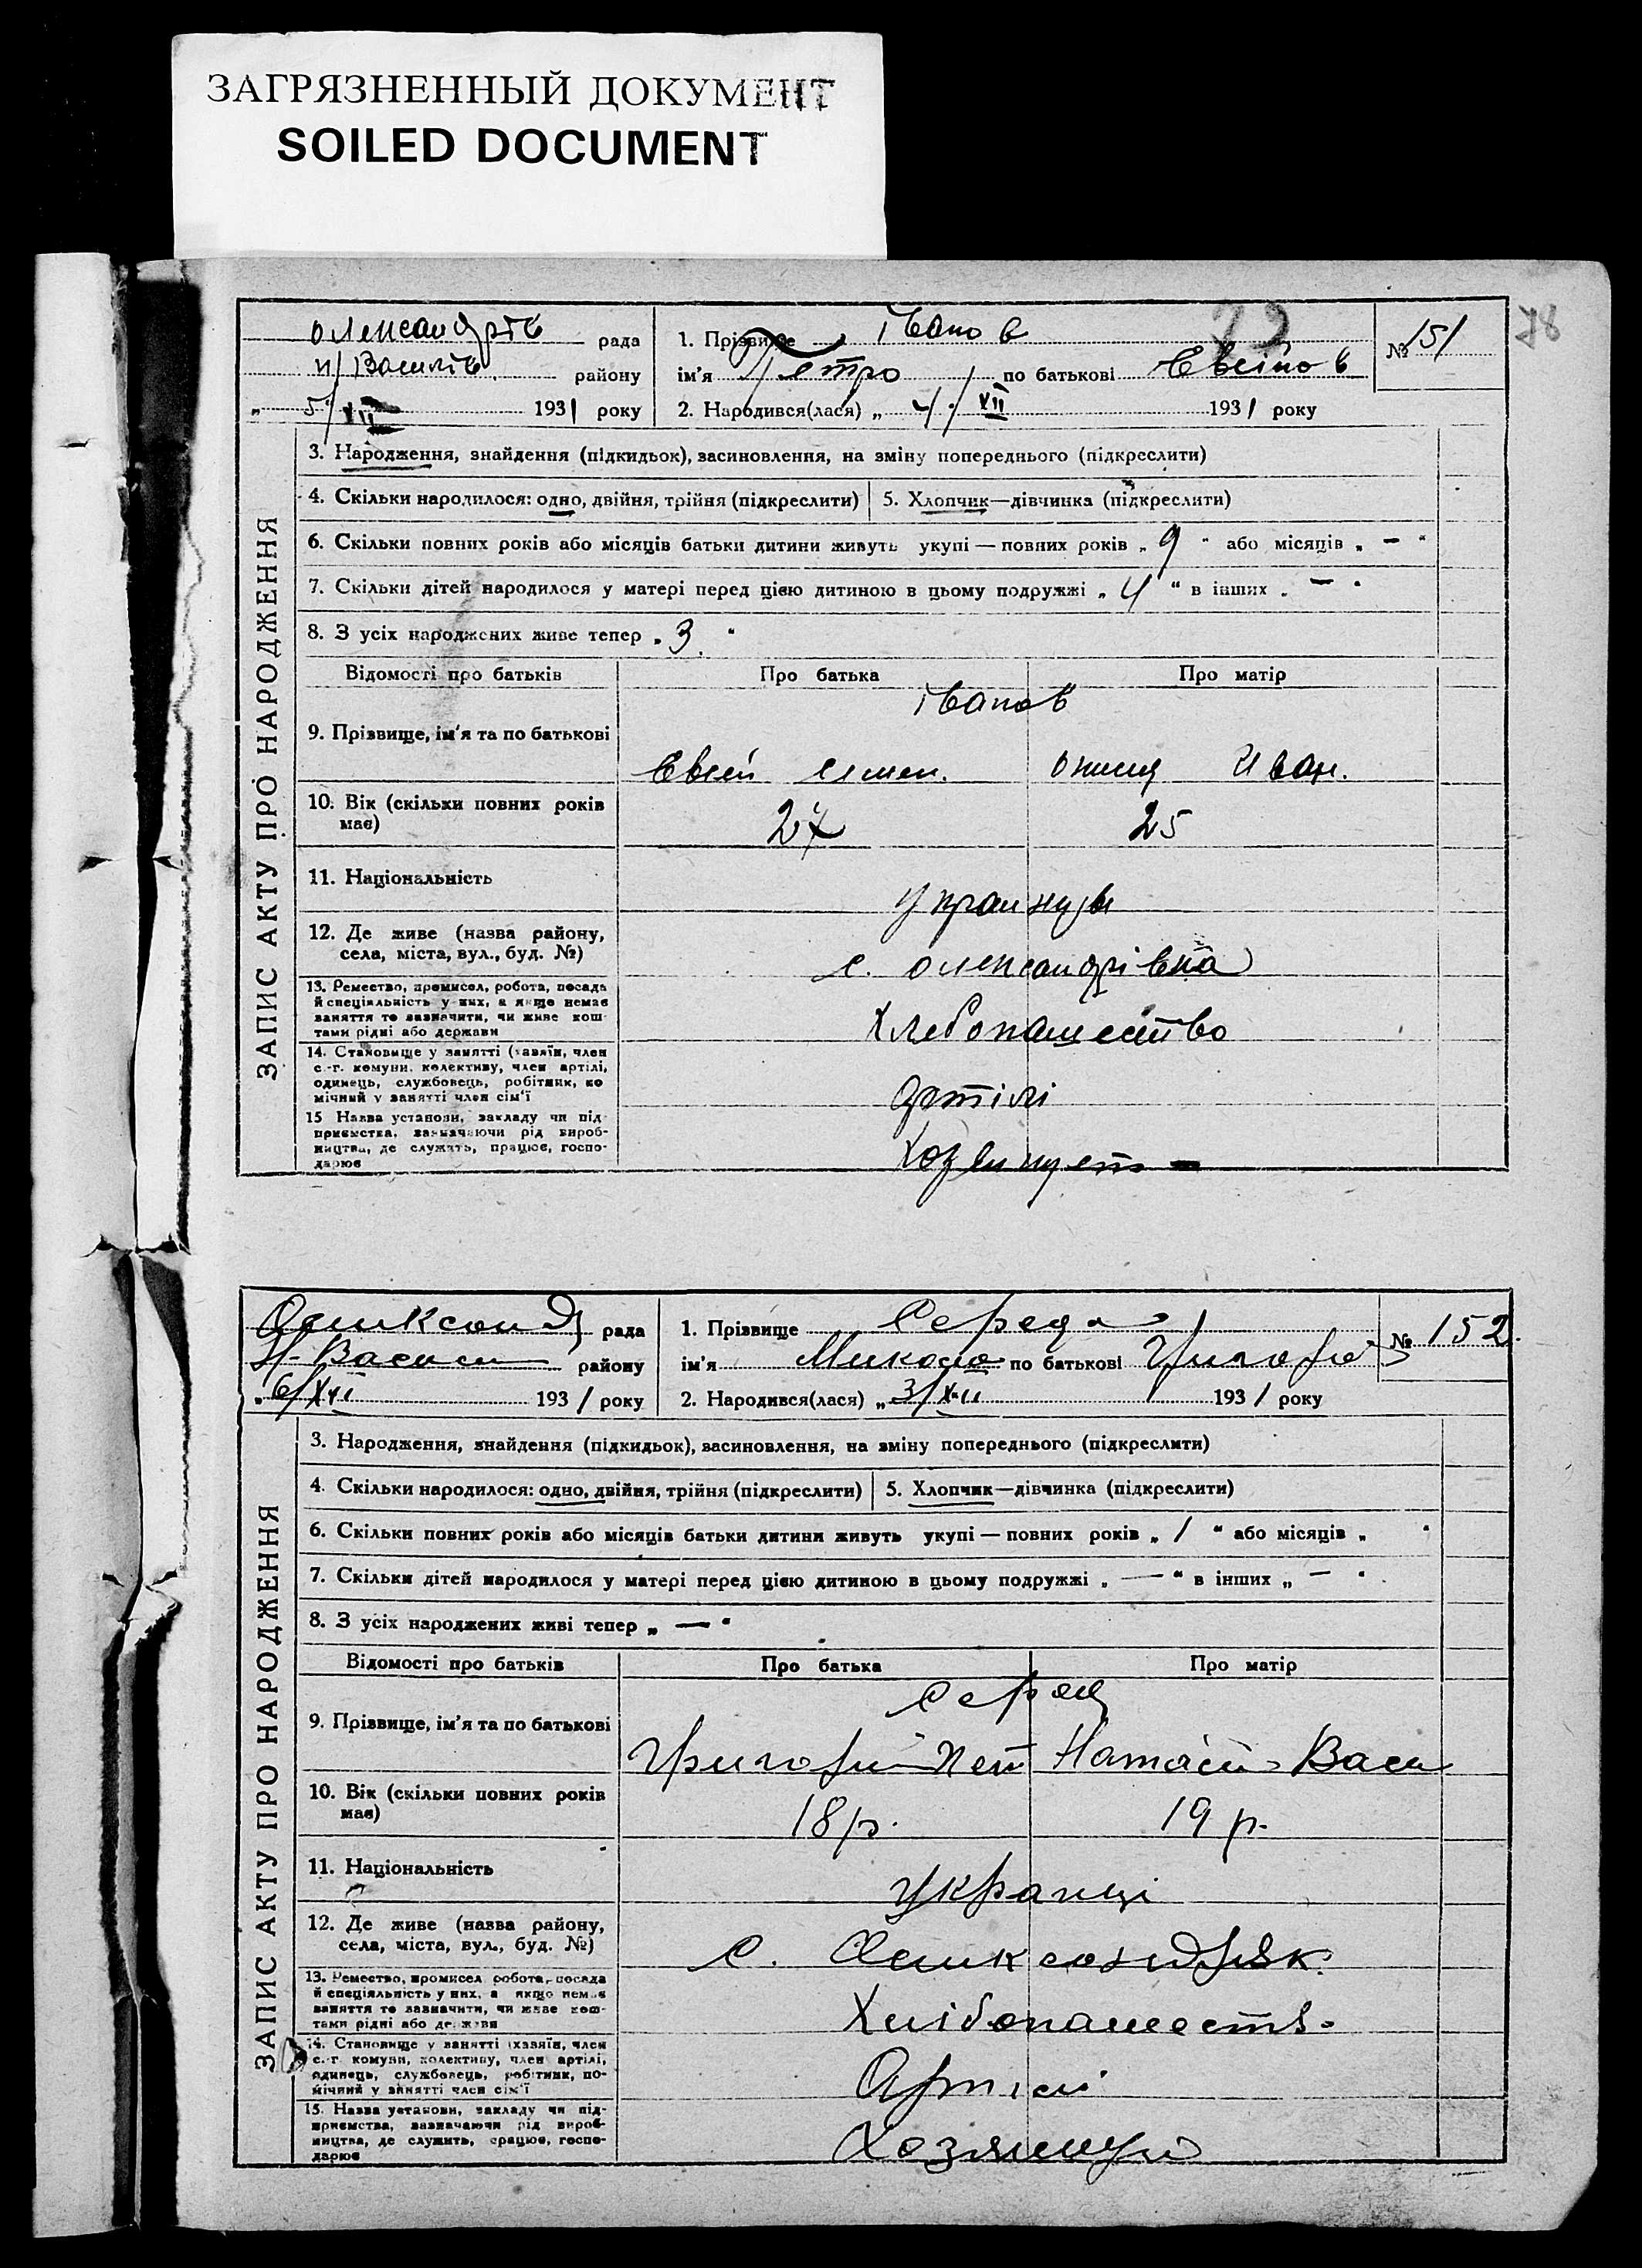 ЗАГРЯЗНЕННЫЙ ДОКУМЕНТ
SOILED DOCUMENT
78
олександрів рада
н/Василів району
„ 5/XII 1931 року
1. Прізвище Іванов
ім'я Петро по батькові Евсіїов
2. Народився(лася) „ 4/XII 1931 року
№ 151
ЗАПИС АКТУ ПРО НАРОДЖЕННЯ
3. Народження, знайдення (підкидьок), засиновлення, на зміну попереднього (підкреслити)
4. Скільки народилося: одно, двійня, трійня (підкреслити) 5. Хлопчик—дівчинка (підкреслити)
6. Скільки повних років або місяців батьки дитини живуть укупі — повних років „ 9 " або місяців „ - "
7. Скільки дітей народилося у матері перед цією дитиною в цьому подружжі „ 4 " в інших „ - "
8. З усіх народжених живе тепер „ 3 "
Відомості про батьків Про батька Про матір
9. Прізвище, ім'я та по батькові
Іванов
Евсей Іван.
10. Вік (скільки повних років має)
27 25
11. Національність
украинцы
12. Де живе (назва району, села, міста, вул., буд. №)
с. олександрівка
13. Ремество, промисел, робота, посада й спеціяльність у них, а якщо немає заняття то зазначити, чи живе коштами рідні або держави
Хлебопашество
14. Становище у занятті (хазяїн, член с.-г. комуни, колективу, член артілі, одинець, службовець, робітник, помічний у занятті член сім'ї
Артілі
15 Назва установи, закладу чи підприємства, зазначаючи рід виробництва, де служить, працює, господарює
рада
Н-Васил району
„ 6/XII 1931 року
1. Прізвище Середа
ім'я Микола по батькові Григоро
2. Народився(лася) „ 3/XII 1931 року
№ 152
ЗАПИС АКТУ ПРО НАРОДЖЕННЯ
3. Народження, знайдення (підкидьок), засиновлення, на зміну попереднього (підкреслити)
4. Скільки народилося: одно, двійня, трійня (підкреслити) 5. Хлопчик—дівчинка (підкреслити)
6. Скільки повних років або місяців батьки дитини живуть укупі — повних років „ 1 " або місяців „ "
7. Скільки дітей народилося у матері перед цією дитиною в цьому подружжі „ — " в інших „ — "
8. З усіх народжених живі тепер „ — "
Відомості про батьків Про батька Про матір
9. Прізвище, ім'я та по батькові
Серед
Григорій Пет Васи
10. Вік (скільки повних років має)
18 р. 19 р.
11. Національність
Українці
12. Де живе (назва району, села, міста, вул., буд. №)
с.
13. Ремество, промисел робота, посада й спеціяльність у них, а якщо немає заняття то зазначити, чи живе коштами рідні або держави
Хлібопашеств.
14. Становище у занятті (хазяїн, член с.-г комуни, колективу, член артілі, одинець, службовець, робітник, помічний у занятті член сім'ї
Артілі
15. Назва установи, закладу чи підприємства, зазначаючи рід виробництва, де служить, працює, господарює